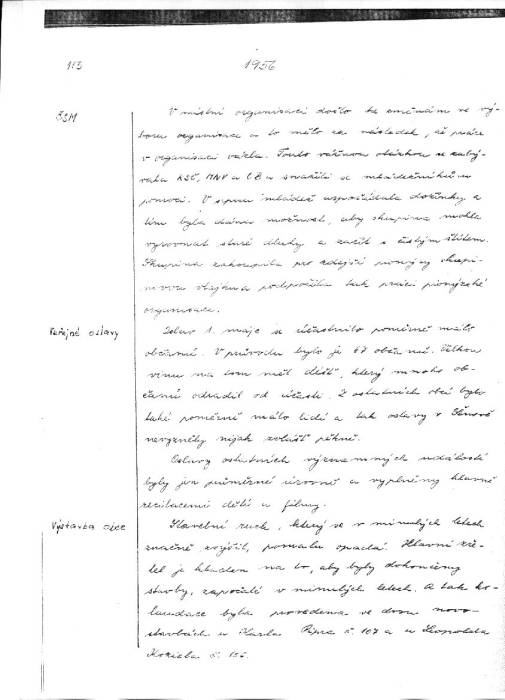 113
1956
ČSM
V místní organisaci došlo ke změnám ve vý-
boru organisace a to mělo za následek, že práce
v organisaci vázla. Touto vážnou otázkou se zabý-
vala KSČ, MNV a ČŽ a snažili se mládežníkům
pomoci. V srpnu mládež uspořádala dožínky a
tím byla dána možnost, aby skupina mohla
vyrovnat staré dluhy a začít s čistým štítem.
Skupina zakoupila pro zdejší pionýry skupi-
novou vlajku a podpořila tak práci pionýrské
organisace.
Veřejné oslavy
Oslav 1. máje se účastnilo poměrně málo
občanů. V průvodu bylo jen 67 občanů. Velkou
vinu na tom měl déšť, který mnoho ob-
čanů odradil od účasti. Z ostatních obcí bylo
také poměrně málo lidí a tak oslavy v
nevyzněly nijak zvlášť pěkně.
Oslavy ostatních významných událostí
byly jen průměrné úrovně a vyplněny hlavně
recitacemi dětí a filmy.
Výstavba obce
Stavební ruch, který se v minulých letech
značně zvýšil, pomalu opadá. Hlavní zře-
tel je kladen na to, aby byly dokončeny
stavby, započaté v minulých letech. A tak ko-
laudace byla provedena ve dvou novo-
stavbách u Karla Pipra č. 167 a u Leopolda
Koziela č.